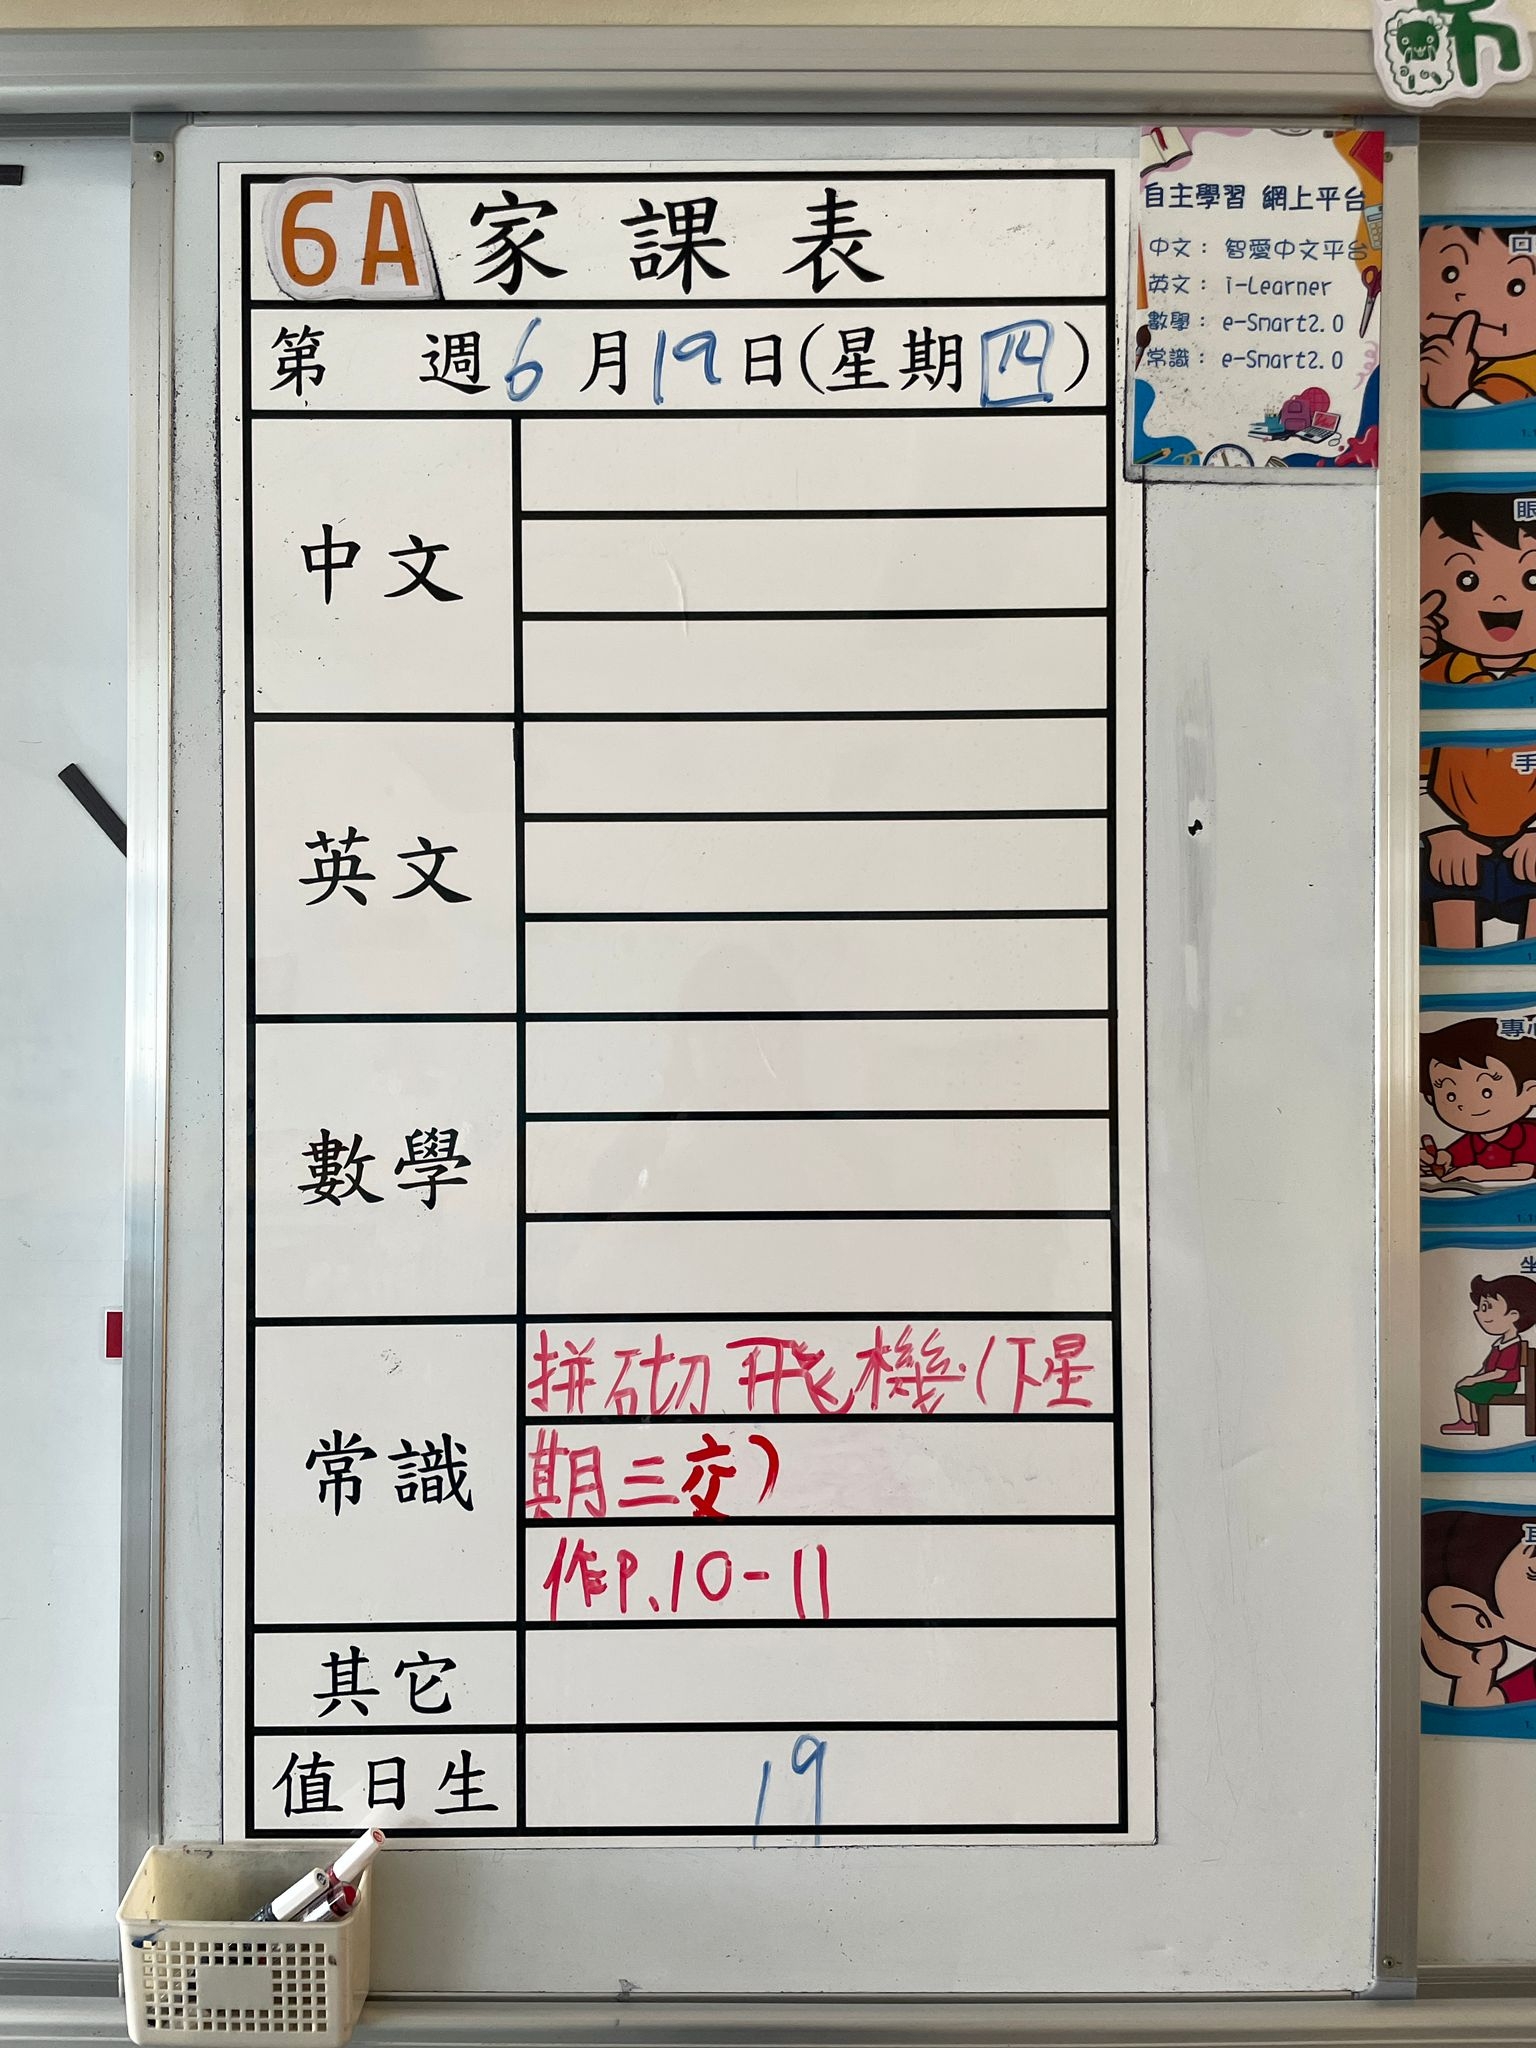 6A 家課表
第 週6月19日(星期四)
自主學習 網上平台
中文： 智愛中文平台
英文： i-Learner
數學： e-Smart2.0
常識： e-Smart2.0
中文
英文
數學
常識
拼砌飛機(下星
期三交)
作P.10-11
其它
值日生
19
回
眼
手
專心
坐
耳